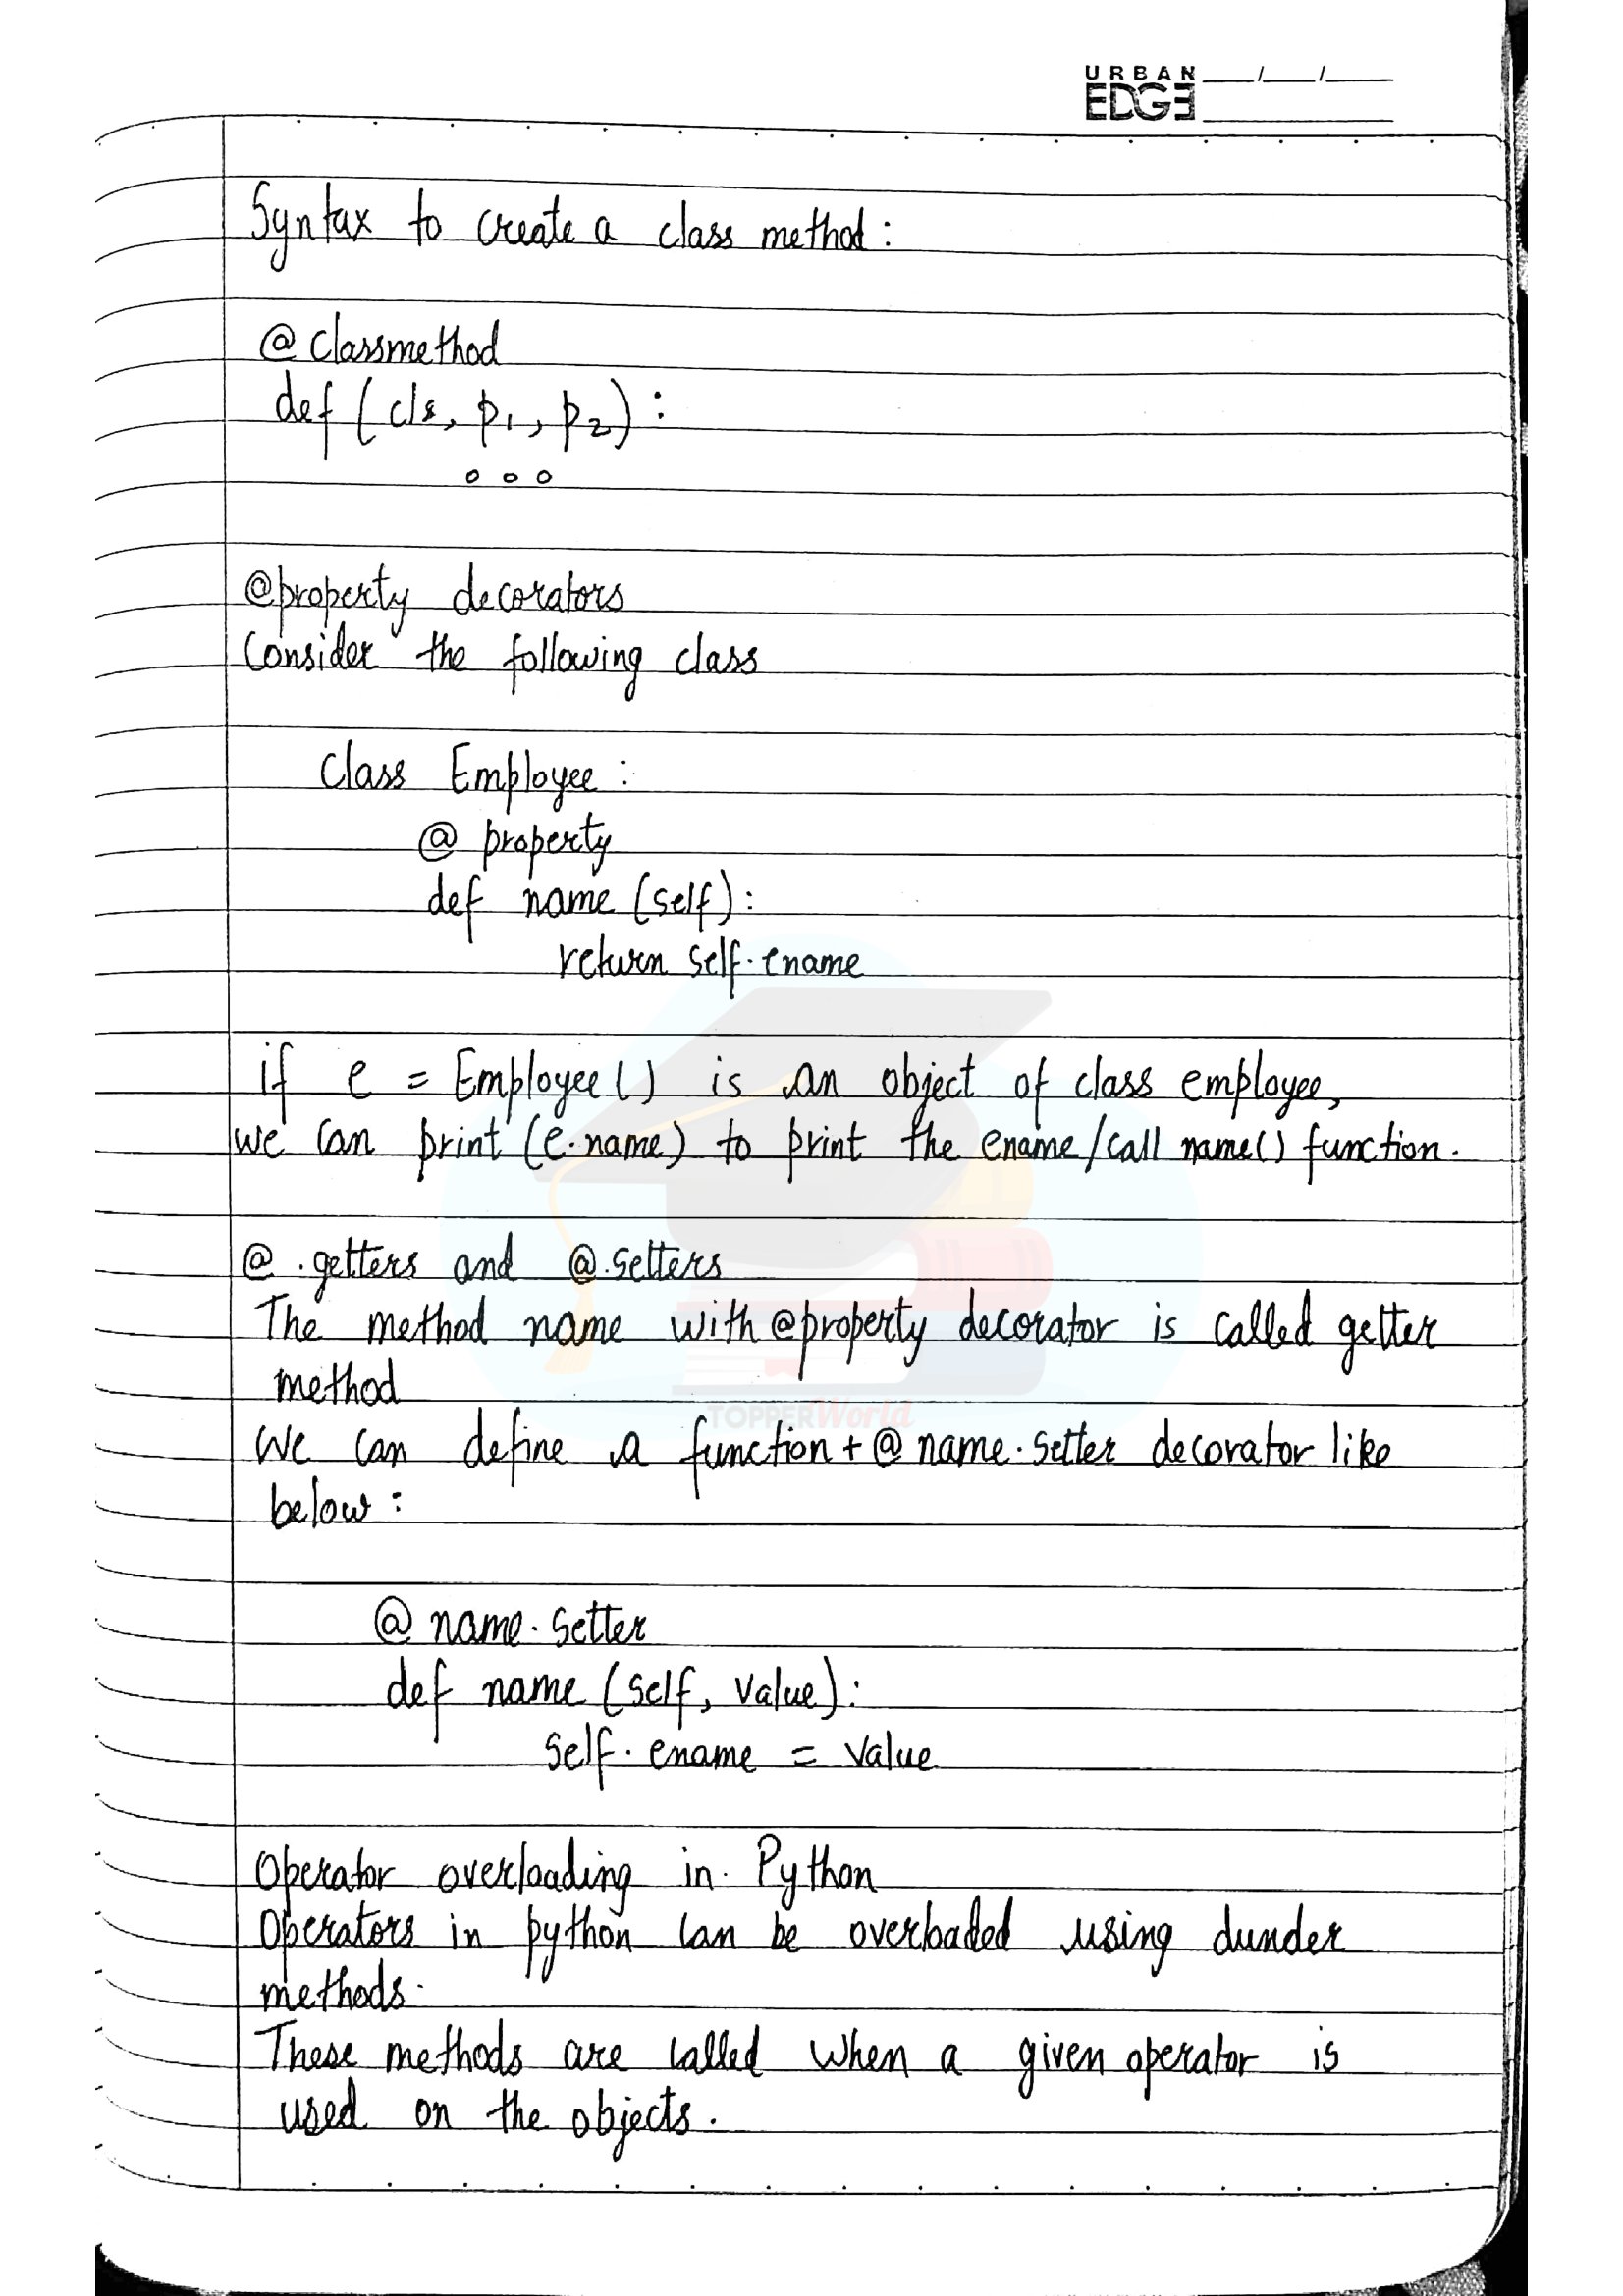 URBAN ___/___/___
EDGE
Syntax to create a class method:
@ classmethod
def (cls, p1, p2):
∘ ∘ ∘
@property decorators
Consider the following class
Class Employee:
@ property
def name (self):
return self.ename
if e = Employee() is an object of class employee,
we can print (e.name) to print the ename/call name() function.
@ .getters and @.setters
The method name with @property decorator is called getter
method
We can define a function + @ name.setter decorator like
below:
@ name.setter
def name (self, value):
self.ename = value
Operator overloading in Python
Operators in python can be overloaded using dunder
methods.
These methods are called when a given operator is
used on the objects.
TOPPERWorld